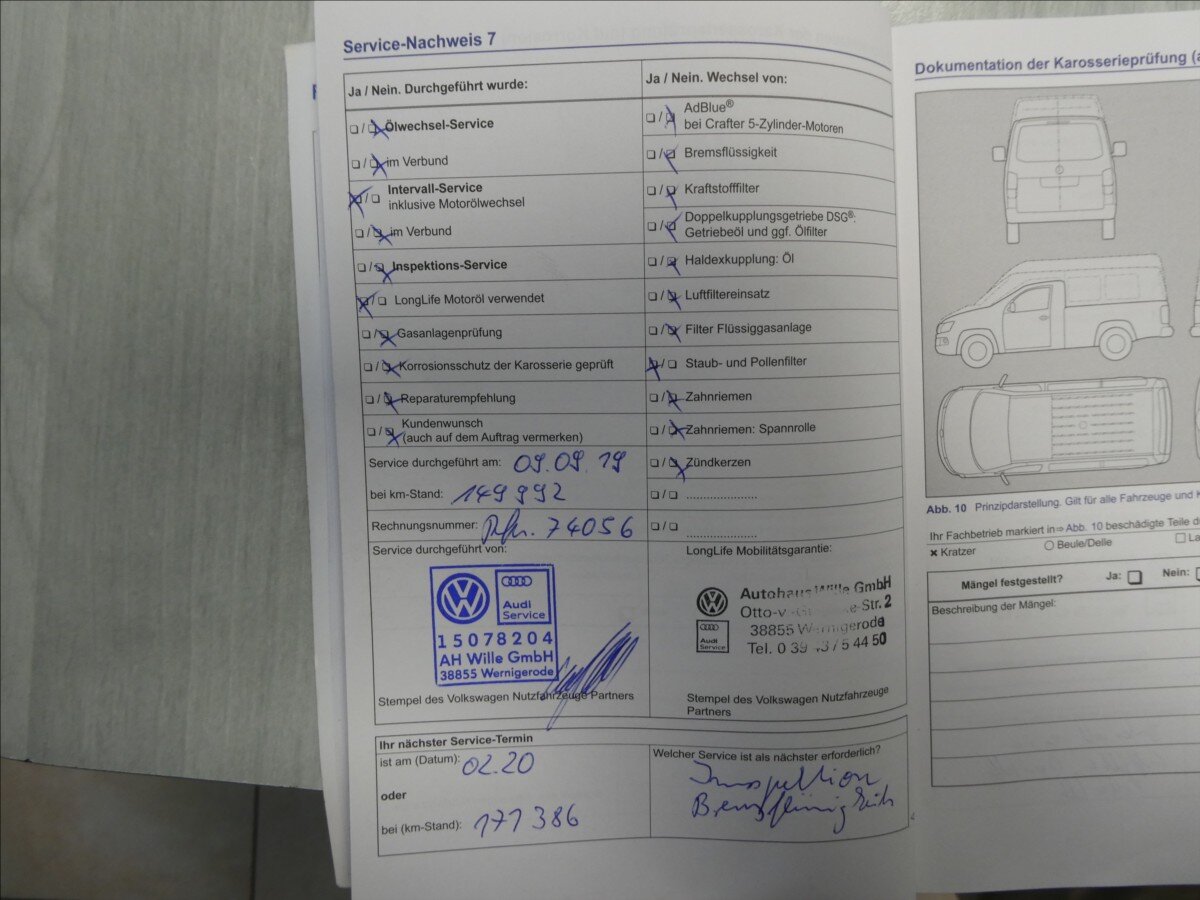 Service-Nachweis 7
Ja / Nein. Durchgeführt wurde:
Ölwechsel-Service
im Verbund
Intervall-Service
inklusive Motorölwechsel
im Verbund
Inspektions-Service
LongLife Motoröl verwendet
Gasanlagenprüfung
Korrosionsschutz der Karosserie geprüft
Reparaturempfehlung
Kundenwunsch
(auch auf dem Auftrag vermerken)
Service durchgeführt am: 09.09.19
bei km-Stand: 149992
Rechnungsnummer: 74056
Service durchgeführt von:
Audi
Service
15078204
AH Wille GmbH
38855 Wernigerode
Stempel des Volkswagen Nutzfahrzeuge Partners
Ja / Nein. Wechsel von:
AdBlue®
bei Crafter 5-Zylinder-Motoren
Bremsflüssigkeit
Kraftstofffilter
Doppelkupplungsgetriebe DSG®:
Getriebeöl und ggf. Ölfilter
Haldexkupplung: Öl
Luftfiltereinsatz
Filter Flüssiggasanlage
Staub- und Pollenfilter
Zahnriemen
Zahnriemen: Spannrolle
Zündkerzen
LongLife Mobilitätsgarantie:
Autohaus Wille GmbH
Str. 2
38855 Wernigerode
Audi
Service
Tel. 0 39 5 44 50
Stempel des Volkswagen Nutzfahrzeuge
Partners
Ihr nächster Service-Termin
ist am (Datum): 02.20
oder
bei (km-Stand): 171386
Welcher Service ist als nächster erforderlich?
Inspektion
Bremsflüssigkeit
Dokumentation der Karosserieprüfung
Abb. 10 Prinzipdarstellung. Gilt für alle Fahrzeuge und
Ihr Fachbetrieb markiert in ⇒ Abb. 10 beschädigte Teile
Kratzer
Beule/Delle
Mängel festgestellt? Ja: Nein:
Beschreibung der Mängel: